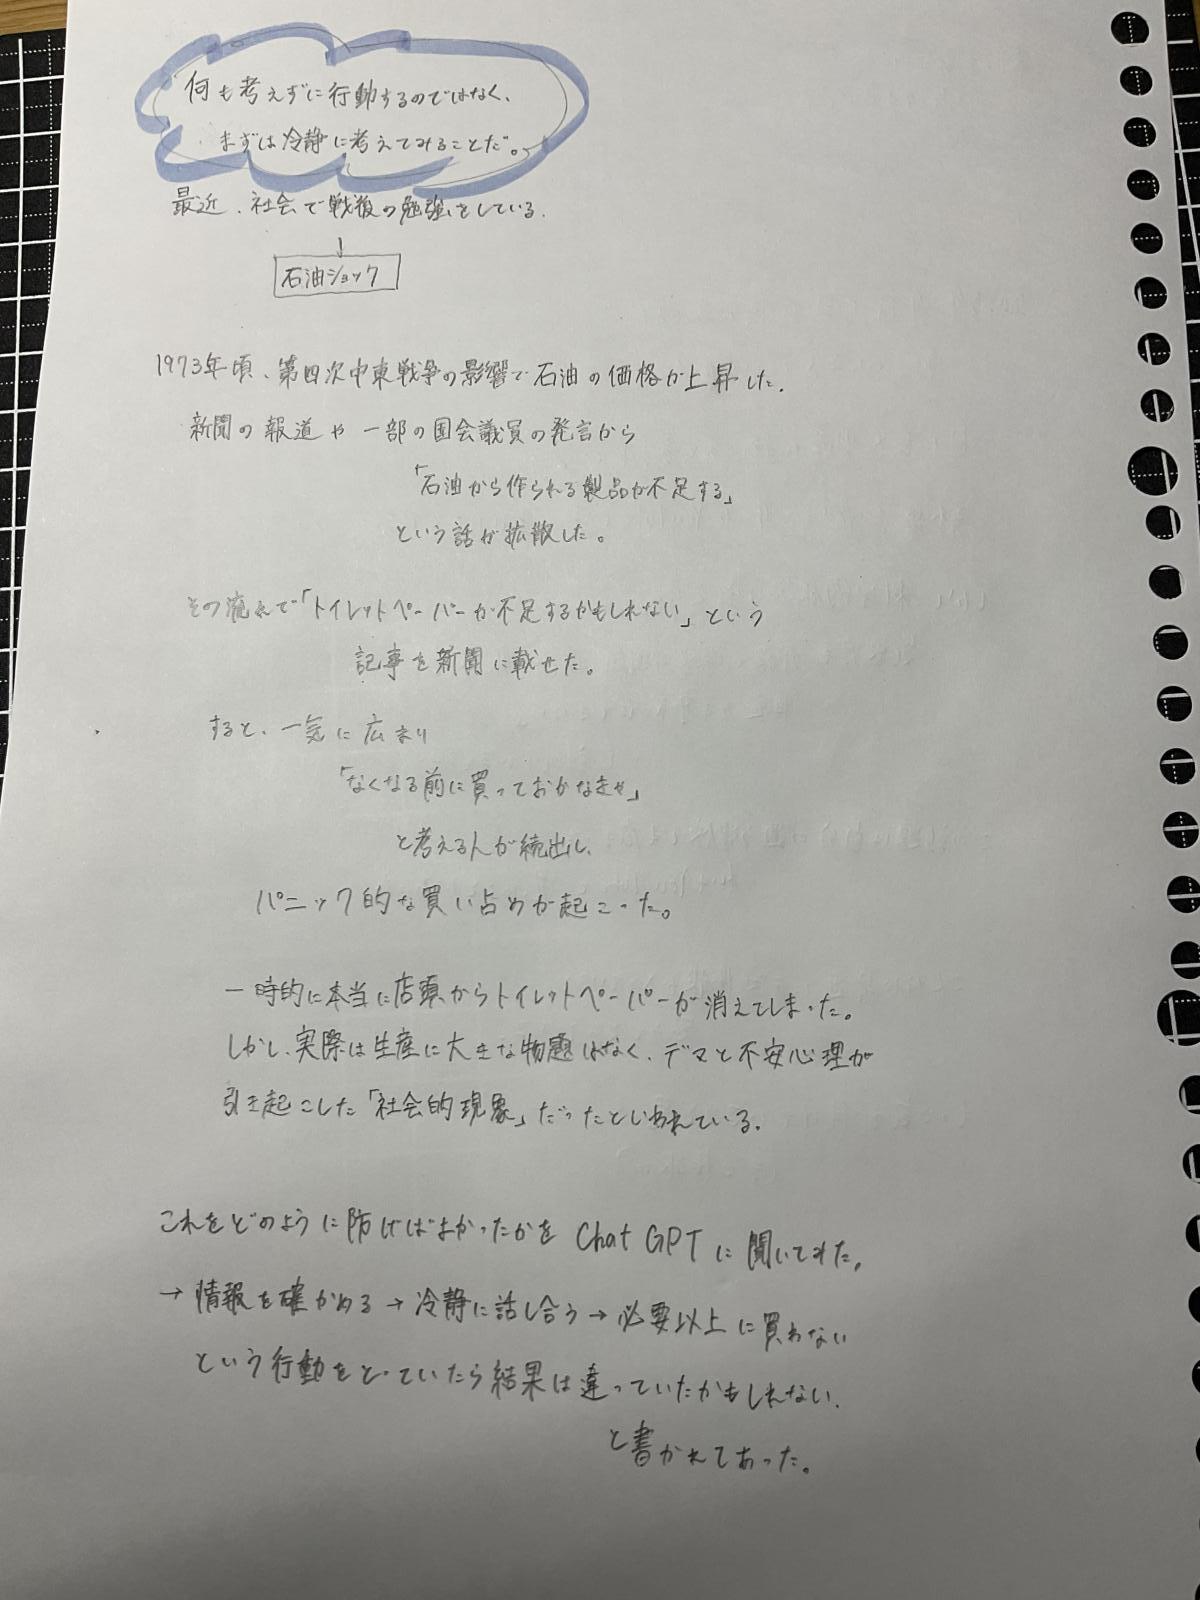 何も考えずに行動するのではなく、
まずは冷静に考えてみることだ。
最近、社会で戦後の勉強をしている.
↓
石油ショック
1973年頃、第四次中東戦争の影響で石油の価格が上昇した.
新聞の報道や一部の国会議員の発言から
「石油から作られる製品が不足する」
という話が拡散した。
その流れで「トイレットペーパーが不足するかもしれない」という
記事を新聞に載せた。
すると、一気に広まり
「なくなる前に買っておかなきゃ」
と考える人が続出し、
パニック的な買い占めが起こった。
一時的に本当に店頭からトイレットペーパーが消えてしまった。
しかし、実際は生産に大きな物題はなく、デマと不安心理が
引き起こした「社会的現象」だったといわれている.
これをどのように防げばよかったかを Chat GPT に聞いてみた.
→ 情報を確かめる → 冷静に話し合う → 必要以上に買わない
という行動をとっていたら結果は違っていたかもしれない.
と書かれてあった。